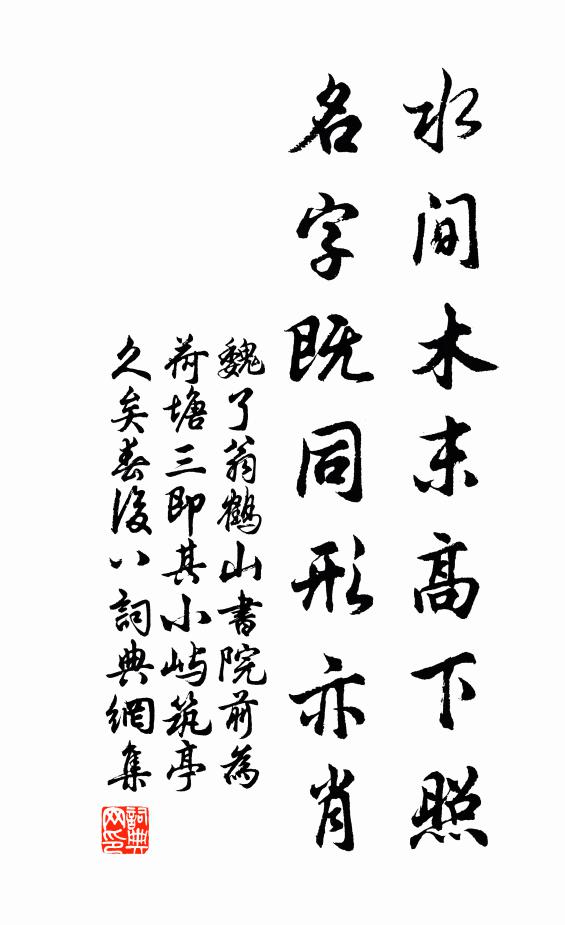 水间木末高下照
名字既同形亦肖
魏了翁鹤山書院前為
荷塘三即其小屿筑亭
久矣春後八詞典網集
詞典
网印